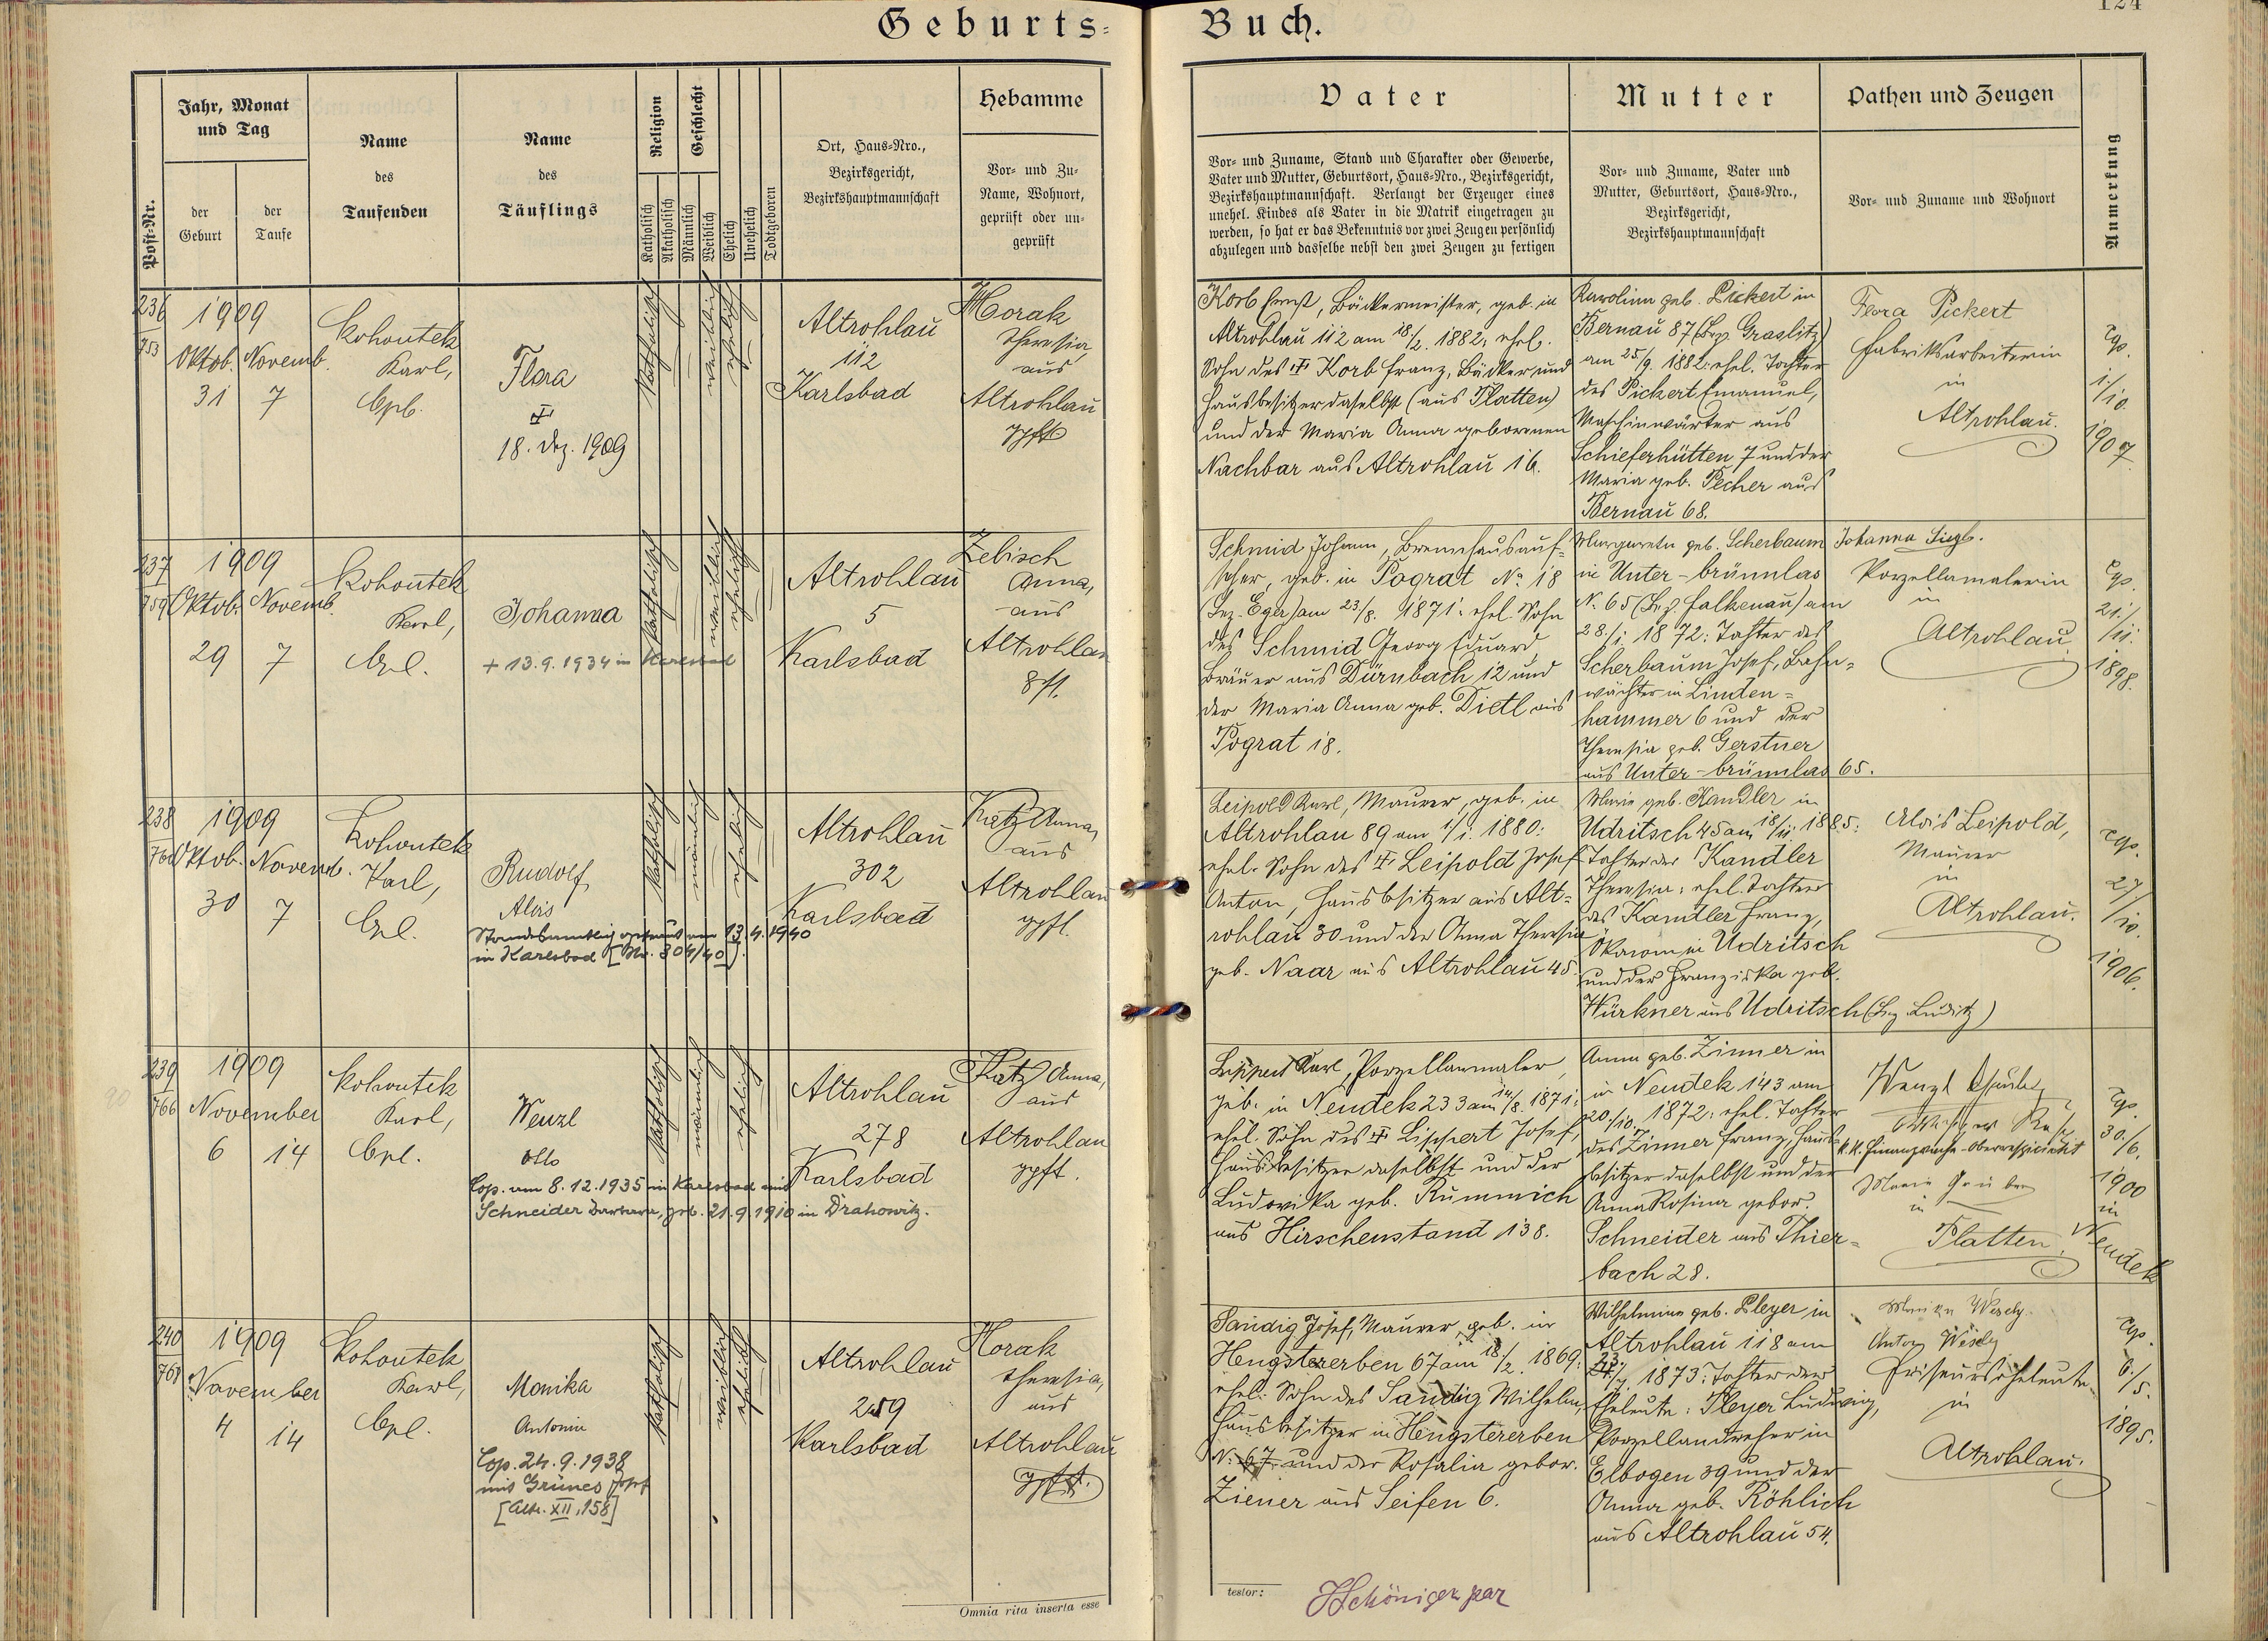 Geburts=
Buch.
124
Post-Nr.
Jahr, Monat
und Tag
der
Geburt
der
Taufe
Name
des
Taufenden
Name
des
Täuflings
Religion
Katholisch
Akatholisch
Geschlecht
Männlich
Weiblich
Ehelich
Unehelich
Todtgeboren
Ort, Haus-Nro.,
Bezirksgericht,
Bezirkshauptmannschaft
Hebamme
Vor- und Zu-
Name, Wohnort,
geprüft oder un-
geprüft
Vater
Vor- und Zuname, Stand und Charakter oder Gewerbe,
Vater und Mutter, Geburtsort, Haus-Nro., Bezirksgericht,
Bezirkshauptmannschaft. Verlangt der Erzeuger eines
unehel. Kindes als Vater in die Matrik eingetragen zu
werden, so hat er das Bekenntnis vor zwei Zeugen persönlich
abzulegen und dasselbe nebst den zwei Zeugen zu fertigen
Mutter
Vor- und Zuname, Vater und
Mutter, Geburtsort, Haus-Nro.,
Bezirksgericht,
Bezirkshauptmannschaft
Pathen und Zeugen
Vor- und Zuname und Wohnort
Anmerkung
236
753
1909
Oktob. Novemb.
31 7
Kohoutek
Karl,
Cpl.
Flora
18. Dez. 1909
katholisch
weiblich
ehelich
Altrohlau
112
Karlsbad
Horak
Theresia,
aus
Altrohlau
gpft
Korb Ernst, Bäckermeister, geb. in
Altrohlau 112 am 18./2. 1882; ehel.
Sohn des Korb Franz, Bäcker und
Hausbesitzer daselbst (aus Platten)
und der Maria Anna geborenen
Nachbar aus Altrohlau 16.
Karolina geb. Pickert in
Bernau 87 (Bez. Graslitz)
am 25/9. 1882: ehel. Tochter
des Pickert Emanuel,
Maschinwärter aus
Schieferhütten 7 und der
Maria geb. Pecher aus
Bernau 68.
Flora Pickert
Fabriksarbeiterin
in
Altrohlau.
Cop.
1./10.
1907.
237
759
1909
Oktob. Novemb.
29 7
Kohoutek
Karl,
Cpl.
Johanna
+ 13.9.1934 in Karlsbad
katholisch
weiblich
ehelich
Altrohlau
5
Karlsbad
Zebisch
Anna,
aus
Altrohlau
gpft.
Schmid Johann, Brennhausauf-
seher, geb. in Pograt No. 18
(Bez. Eger) am 23/8. 1871: ehel. Sohn
des Schmid Georg Eduard,
Bräuer aus Dürnbach 12 und
der Maria Anna geb. Dietl aus
Pograt 18.
Margareta geb. Scherbaum
in Unter-brünnlas
N. 65 (Bez. Falkenau) am
28./1 1872: Tochter des
Scherbaum Josef, Bahn=
wächter in Linden=
hammer 6 und der
Theresia geb. Gerstner
aus Unter-brünnlas 65.
Johanna Siegl.
Porzellanmalerin
in
Altrohlau.
Cop.
21./11.
1898.
238
760
1909
Oktob. Novemb.
30 7
Kohoutek
Karl,
Cpl.
Rudolf
Alois
Standesamtlich getraut am 13.4.1940
in Karlsbad [Nr. 304/40].
katholisch
männlich
ehelich
Altrohlau
302
Karlsbad
Katz Anna,
aus
Altrohlau
gpft.
Leipold Karl, Maurer, geb. in
Altrohlau 89 am 1/1. 1880:
ehel. Sohn des Leipold Josef
Anton, Hausbesitzer aus Alt=
rohlau 30 und der Anna Theresia
geb. Naar aus Altrohlau 45.
Marie geb. Kandler in
Udritsch 45 am 18/11. 1885:
Tochter der Kandler
Theresia: ehel. Tochter
des Kandler Franz,
Ökonom in Udritsch
und der Franziska geb.
Würkner aus Udritsch (Bez. Luditz)
Alois Leipold,
Maurer
in
Altrohlau.
Cop.
27/10.
1906.
239
766
1909
November
6 14
Kohoutek
Karl,
Cpl.
Wenzl
Otto
Cop. am 8.12.1935 in Karlsbad mit
Schneider Barbara, geb. 21.9.1910 in Drahowitz.
katholisch
männlich
ehelich
Altrohlau
278
Karlsbad
Katz Anna,
aus
Altrohlau
gpft.
Lippert Karl, Porzellanmaler,
geb. in Neudek 233 am 14/8. 1871:
ehel. Sohn des Lippert Josef,
Hausbesitzer daselbst und der
Ludovika geb. Rümmich
aus Hirschenstand 138.
Anna geb. Zinner in
in Neudek 143 am
20./10. 1872: ehel. Tochter
des Zinner Franz, Haus-
besitzer daselbst und der
Anna Rosina gebor.
Schneider aus Thier=
bach 28.
Wenzl
k.k. Finanzwache-Oberrespicient
Marie
in
Platten.
Cop.
30./6.
1900
in
Neudek
240
768
1909
November
4 14
Kohoutek
Karl,
Cpl.
Monika
Antonia
Cop. 24.9.1938
mit Grünes Josef
[Altr. XII, 158]
katholisch
weiblich
ehelich
Altrohlau
259
Karlsbad
Horak
Theresia,
aus
Altrohlau
gpft.
Sandig Josef, Maurer, geb. in
Hengstererben 67 am 18./2. 1869:
ehel. Sohn des Sandig Wilhelm,
Hausbesitzer in Hengstererben
N. 67 und der Rosalia gebor.
Ziener aus Seifen 6.
Wilhelmine geb. Pleyer in
Altrohlau 118 am
1873: Tochter der
Eheleute: Pleyer Ludwig,
Porzellandreher in
Elbogen 39 und der
Anna geb. Röhlich
aus Altrohlau 54.
Monika Wesely
Anton Wesely
Friseurseheleute
in
Altrohlau.
Cop.
6./5.
1895.
Omnia rita inserta esse
testor: